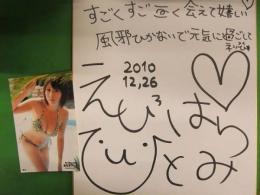 すごくすご〜く会えて嬉しい
風邪ひかないで元気に過ごして
2010
12,26
えびはら
ひとみ